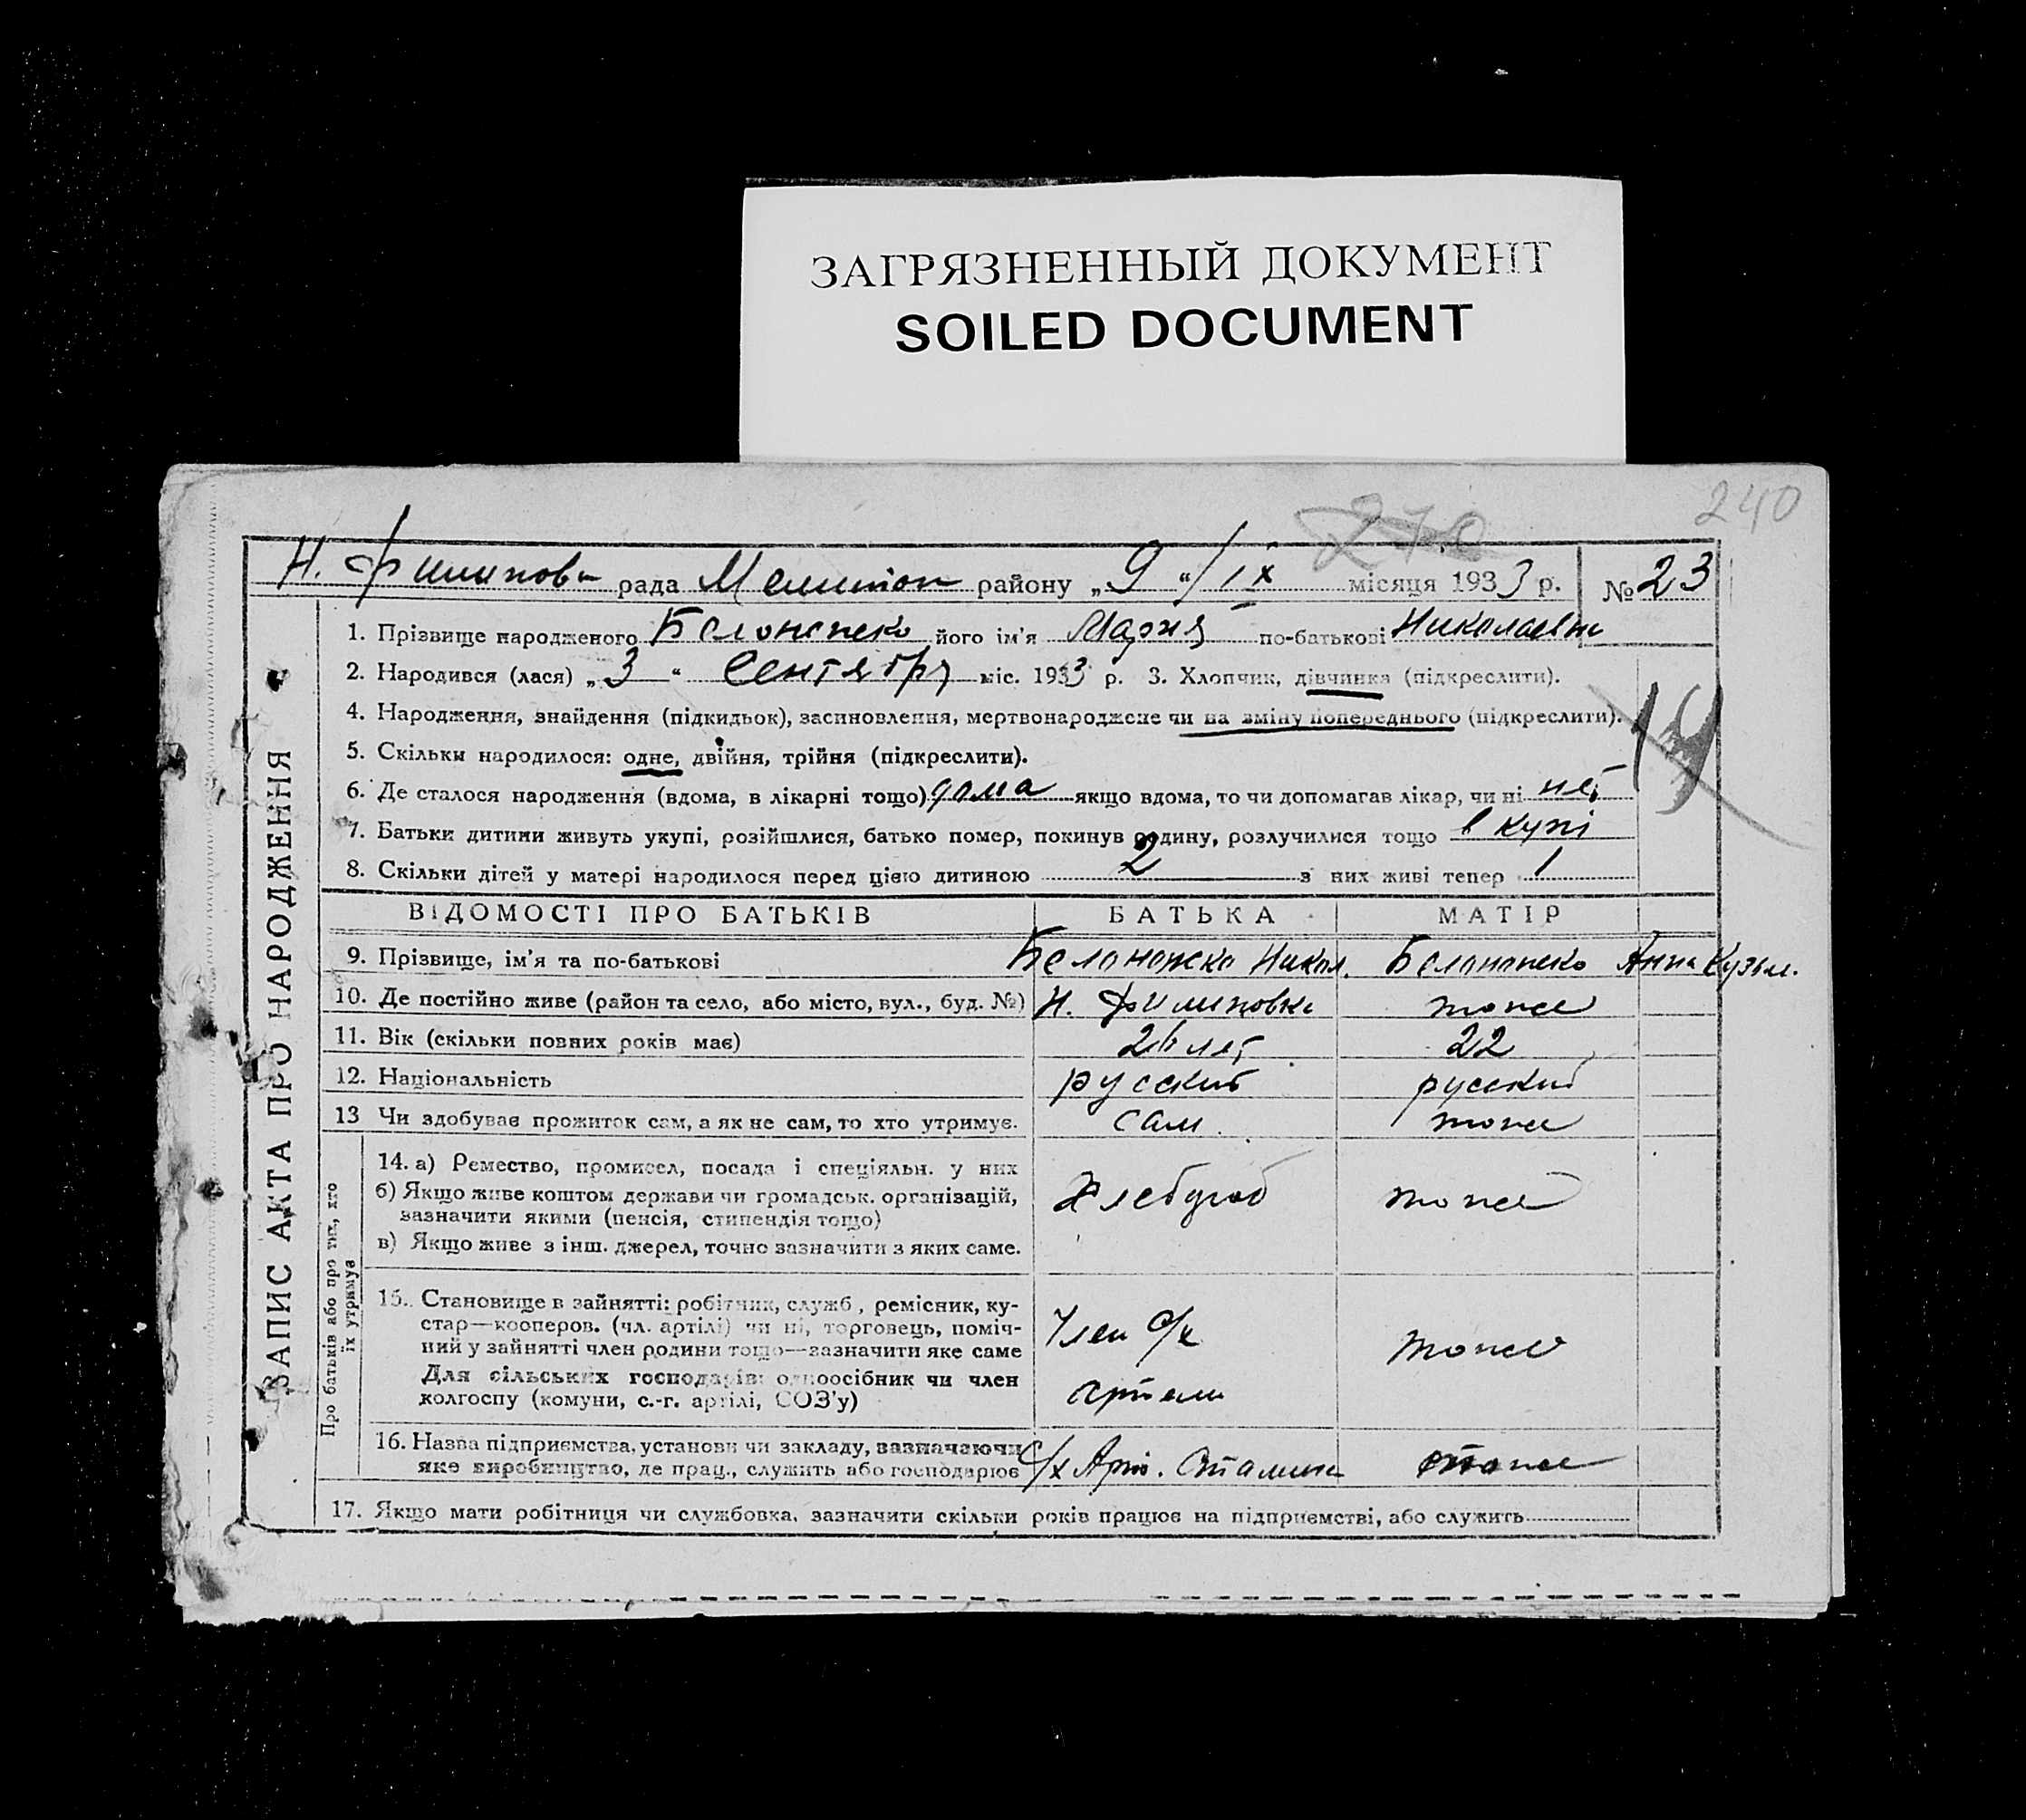 ЗАГРЯЗНЕННЫЙ ДОКУМЕНТ
SOILED DOCUMENT
240
270
Н. Филипов рада Мелитоп району „9“/IX місяця 1933 р. № 23
ЗАПИС АКТА ПРО НАРОДЖЕННЯ
1. Прізвище народженого його ім'я Мария по-батькові Николаевна
2. Народився (лася) „3“ Сентября міс. 1933 р. 3. Хлопчик, дівчинка (підкреслити).
4. Народження, знайдення (підкидьок), засиновлення, мертвонароджене чи на зміну попереднього (підкреслити).
5. Скільки народилося: одне, двійня, трійня (підкреслити).
6. Де сталося народження (вдома, в лікарні тощо) дома якщо вдома, то чи допомагав лікар, чи ні нет
7. Батьки дитини живуть укупі, розійшлися, батько помер, покинув родину, розлучилися тощо вкупі
8. Скільки дітей у матері народилося перед цією дитиною 2 з них живі тепер 1
ВІДОМОСТІ ПРО БАТЬКІВ БАТЬКА МАТІР
9. Прізвище, ім'я та по-батькові Белоножко Никол. Белоножко Анна Кузьм.
10. Де постійно живе (район та село, або місто, вул., буд. №) Н. Филиповка тоже
11. Вік (скільки повних років має) 26 лет 22
12. Національність русский русский
13 Чи здобуває прожиток сам, а як не сам, то хто утримує. сам тоже
Про батьків або про тих, хто
їх утримує
14. а) Ремество, промисел, посада і спеціяльн. у них
б) Якщо живе коштом держави чи громадськ. організацій, Хлебороб тоже
зазначити якими (пенсія, стипендія тощо)
в) Якщо живе з інш. джерел, точно зазначити з яких саме.
15. Становище в зайнятті: робітник, служб., ремісник, ку-
стар—кооперов. (чл. артілі) чи ні, торговець, поміч- Член с/х тоже
ний у зайнятті член родини тощо—зазначити яке саме
Для сільських господарів: одноосібник чи член артели
колгоспу (комуни, с.-г. артілі, СОЗ'у)
16. Назва підприємства, установи чи закладу, зазначаючи
яке виробництво, де прац., служить або господарює с/х Арт. Сталина тоже
17. Якщо мати робітниця чи службовка, зазначити скільки років працює на підприємстві, або служить